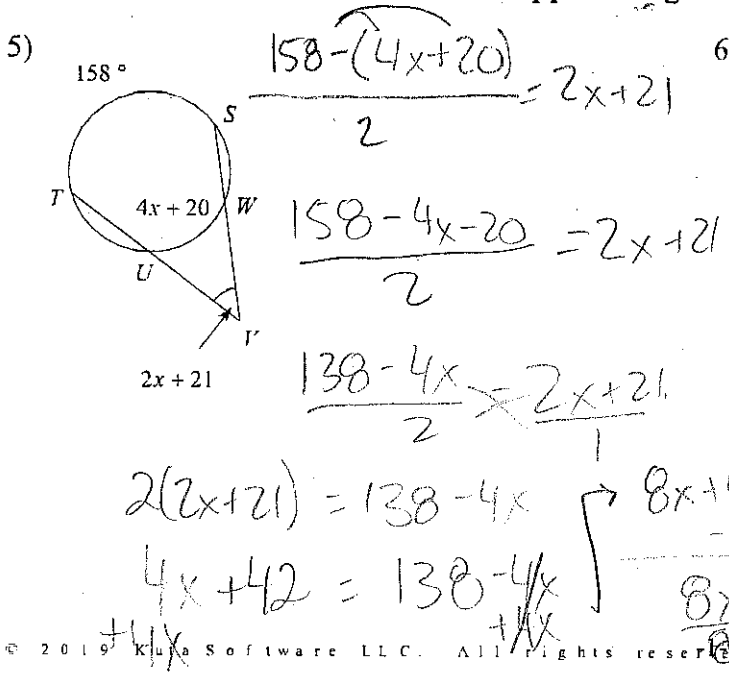 5)
6
158 °
S
T
4x + 20
W
U
V
2x + 21
158-(4x+20)
2
= 2x+21
158-4x-20
2
= 2x+21
138-4x
2
=
2x+21
1
2(2x+21) = 138-4x
4x+42 = 138-4x
+4x
+4x
8x+
-
© 2019 Kuta Software LLC. All rights reser